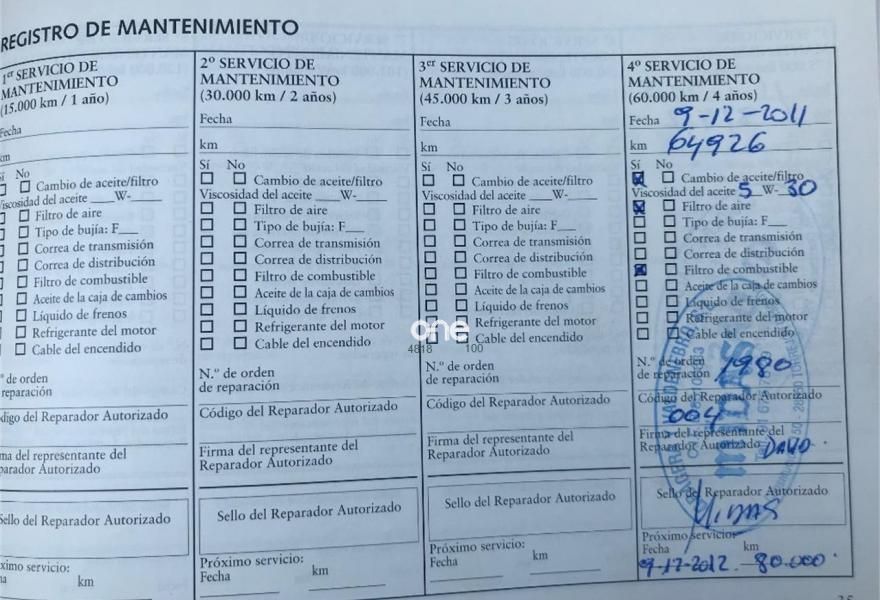 REGISTRO DE MANTENIMIENTO
1er SERVICIO DE
MANTENIMIENTO
(15.000 km / 1 año)
Fecha
km
Sí No
Cambio de aceite/filtro
Viscosidad del aceite ____W-____
Filtro de aire
Tipo de bujía: F___
Correa de transmisión
Correa de distribución
Filtro de combustible
Aceite de la caja de cambios
Líquido de frenos
Refrigerante del motor
Cable del encendido
º de orden
reparación
digo del Reparador Autorizado
ma del representante del
parador Autorizado
Sello del Reparador Autorizado
ximo servicio:
km
2º SERVICIO DE
MANTENIMIENTO
(30.000 km / 2 años)
Fecha
km
Sí No
Cambio de aceite/filtro
Viscosidad del aceite ____W-____
Filtro de aire
Tipo de bujía: F___
Correa de transmisión
Correa de distribución
Filtro de combustible
Aceite de la caja de cambios
Líquido de frenos
Refrigerante del motor
Cable del encendido
N.º de orden
de reparación
Código del Reparador Autorizado
Firma del representante del
Reparador Autorizado
Sello del Reparador Autorizado
Próximo servicio:
Fecha km
3er SERVICIO DE
MANTENIMIENTO
(45.000 km / 3 años)
Fecha
km
Sí No
Cambio de aceite/filtro
Viscosidad del aceite ____W-____
Filtro de aire
Tipo de bujía: F___
Correa de transmisión
Correa de distribución
Filtro de combustible
Aceite de la caja de cambios
Líquido de frenos
Refrigerante del motor
Cable del encendido
N.º de orden
de reparación
Código del Reparador Autorizado
Firma del representante del
Reparador Autorizado
Sello del Reparador Autorizado
Próximo servicio:
Fecha km
4º SERVICIO DE
MANTENIMIENTO
(60.000 km / 4 años)
Fecha 9-12-2011
km 64926
Sí No
Cambio de aceite/filtro
Viscosidad del aceite 5 W-30
Filtro de aire
Tipo de bujía: F___
Correa de transmisión
Correa de distribución
Filtro de combustible
Aceite de la caja de cambios
Líquido de frenos
Refrigerante del motor
Cable del encendido
N.º de orden
de reparación 1980
Código del Reparador Autorizado
004
Firma del representante del
Reparador Autorizado DAVID
Sello del Reparador Autorizado
Midas
Próximo servicio:
Fecha km
9-12-2012. 80.000.
one
4818 100